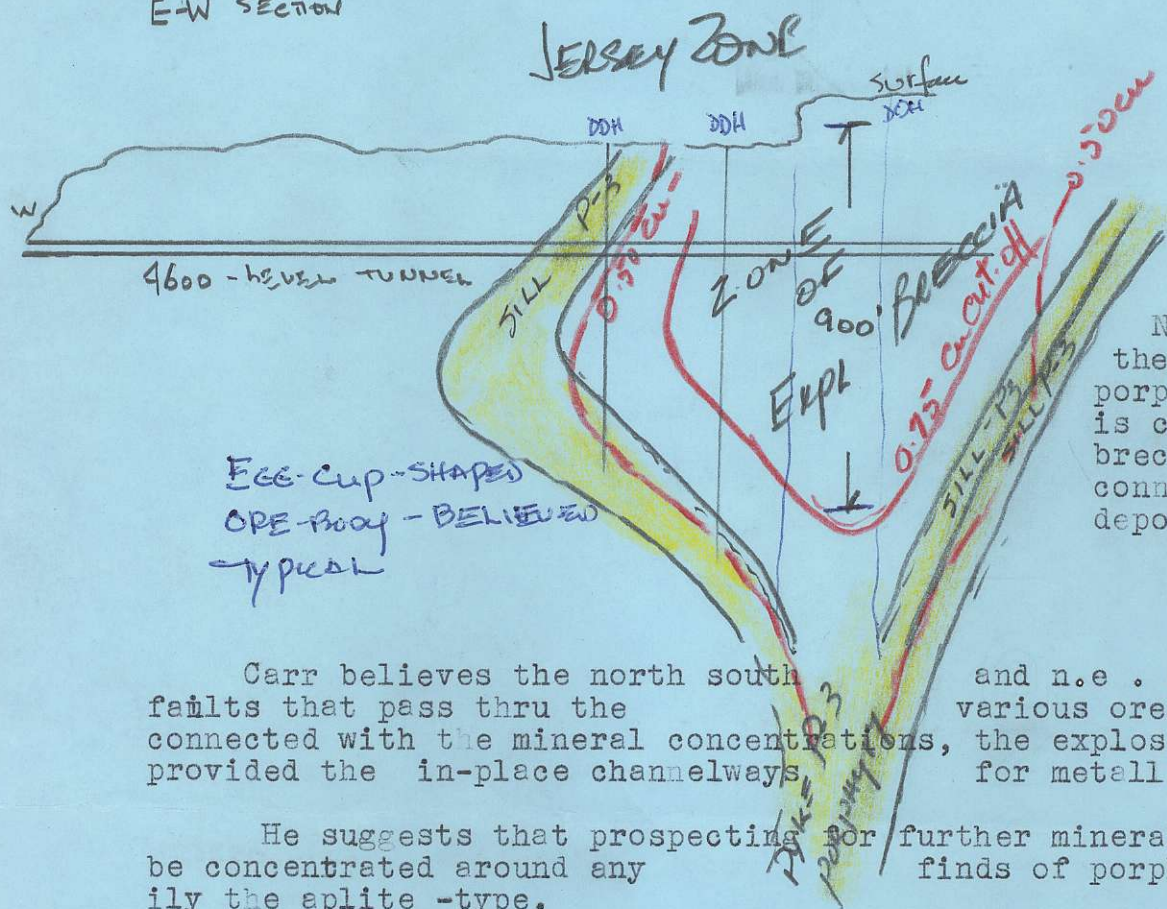 E-W SECTION
JERSEY ZONE
surface
DDH
DDH
DDH
W
4600 - LEVEL TUNNEL
SILL P-3
0.50 cu -
ZONE
OF
900' BRECCIA
Expl
0.75 cu cut-off
0.50 cu
SILL - P3
SILL P-3
EGG-Cup-SHAPED
ORE-BODY - BELIEVED
TYPICAL
N
the
porp
is c
brec
conn
depo
Carr believes the north south and n.e .
faults that pass thru the various ore
connected with the mineral concentrations, the explos
provided the in-place channelways for metall
He suggests that prospecting for further minera
be concentrated around any finds of porp
ily the aplite -type.
DYKE P-3
porphyry